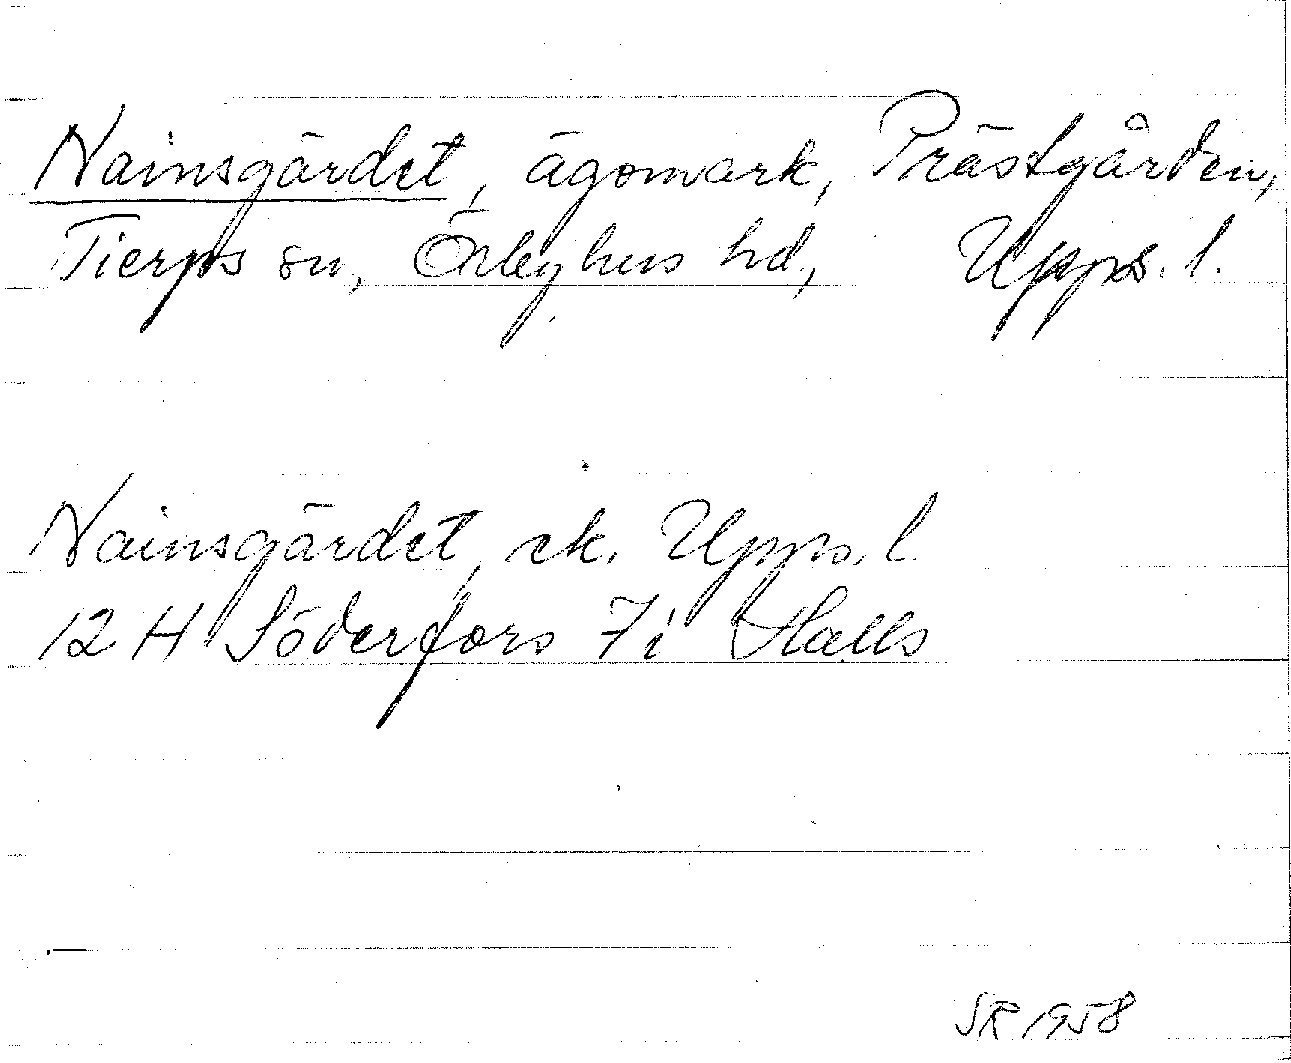 Nainsgärdet, ägomark, Prästgården,
Tierps sn, Örbyhus hd, Upps. l.
Nainsgärdet, ek. Upps. l
12 H Söderfors 7i Halls
SR 1958